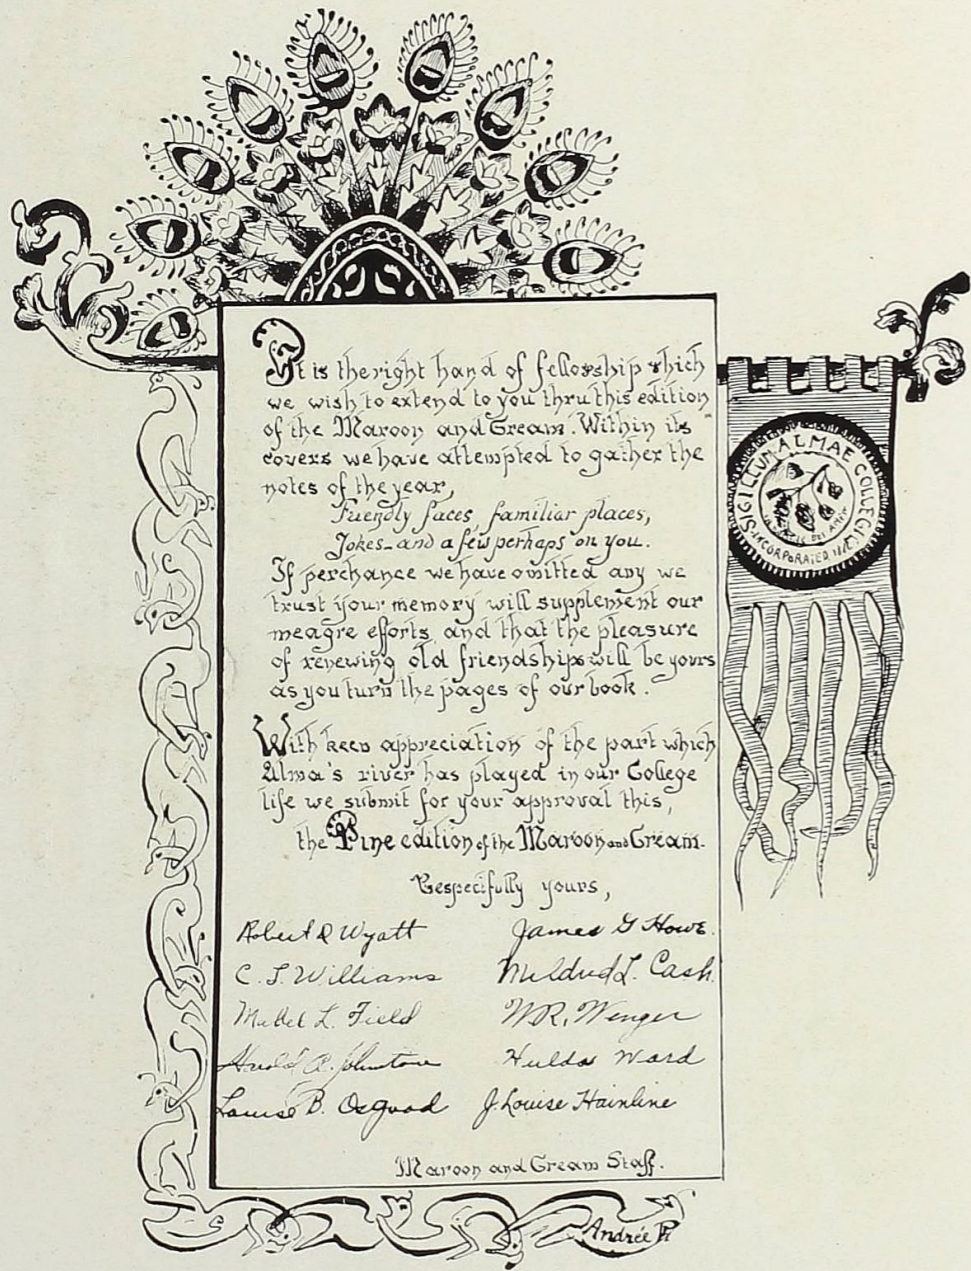 It is the right hand of fellowship which
we wish to extend to you thru this edition
of the Maroon and Cream. Within its
covers we have attempted to gather the
notes of the year,
Friendly faces, familiar places,
Jokes - and a few perhaps on you.
If perchance we have omitted any we
trust your memory will supplement our
meagre efforts and that the pleasure
of renewing old friendships will be yours
as you turn the pages of our book.
With keen appreciation of the part which
Alma's river has played in our College
life we submit for your approval this,
the Pine edition of the Maroon and Cream.
Respectfully yours,
Robert D Wyatt James G Howe.
C. J. Williams Mildred L. Cash.
Mabel L. Field W.R. Wenger
Harold A. Johnstone Hulda Ward
Louise B. Osgood J. Louise Hainline
Maroon and Cream Staff.
SIGILLUM ALMAE COLLEGII
INCORPORATED
Andrée